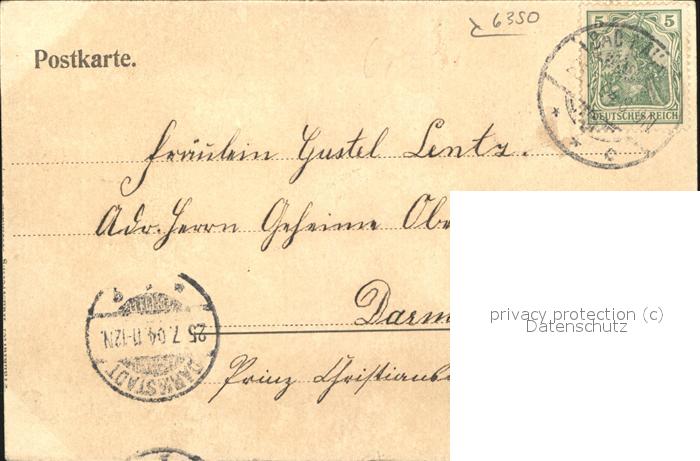 6350
5 5
DEUTSCHES REICH
Postkarte.
BAD
Fräulein Gustel Lentz.
Adr. Herrn Geheime Obe
Darm
Prinz Christiansb
25.7.04.11-12N.
DARMSTADT
privacy protection (c)
Datenschutz